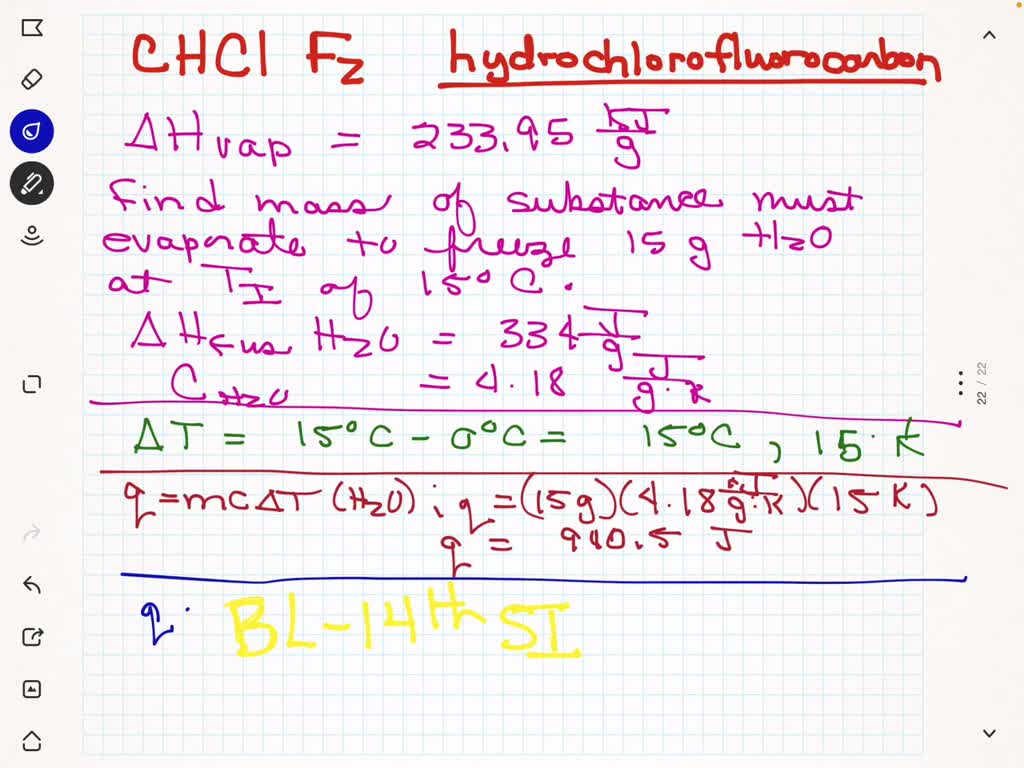 CHCl F2 hydrochlorofluorocarbon
ΔHvap = 233.95 kJ/g
Find mass of substance must
evaporate to freeze 15 g H2O
at TI of 15°C.
ΔHfus H2O = 334 J/g
C H2O = 4.18 J/g·K
ΔT = 15°C - 0°C = 15°C, 15. K
q = mCΔT (H2O); q = (15g)(4.18 J/g·K)(15 K)
q = 940.5 J
q.
BL-14th SI
22 / 22